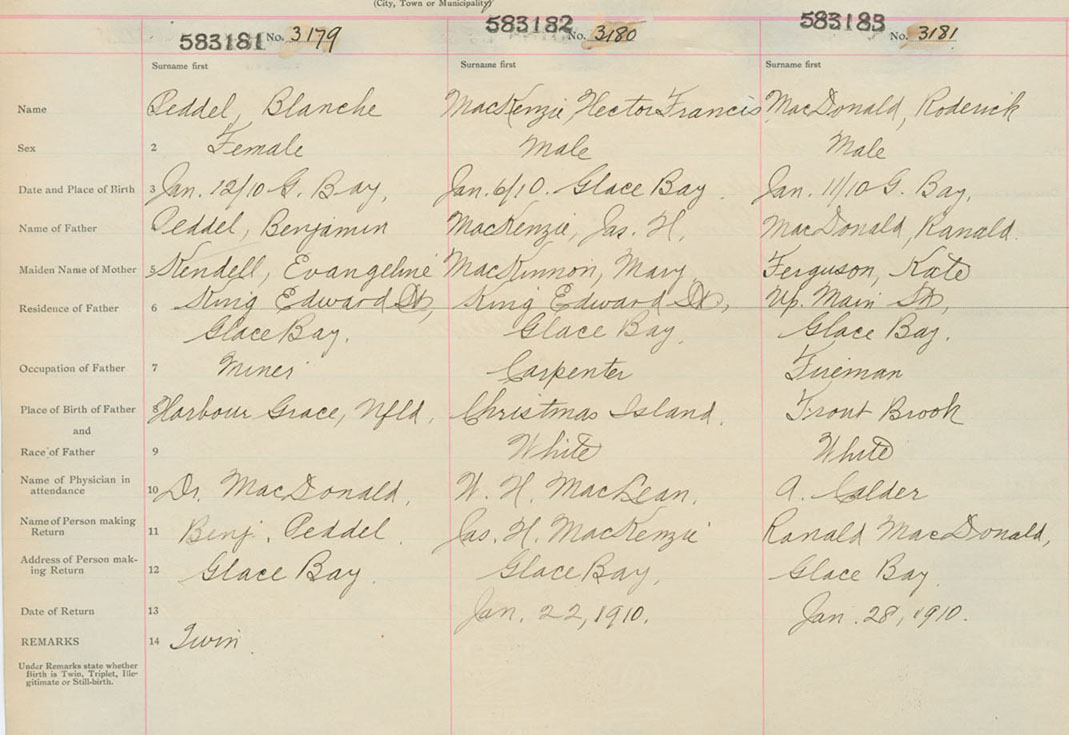 (City, Town or Municipality)
583181 No. 3179 583182 No. 3180 583183 No. 3181
Surname first Surname first Surname first
Name 1 Peddel, Blanche MacKenzie, Hector Francis MacDonald, Roderick
Sex 2 Female Male Male
Date and Place of Birth 3 Jan. 12/10 G. Bay, Jan. 6/10. Glace Bay Jan. 11/10 G. Bay,
Name of Father Peddel, Benjamin MacKenzie, Jas. H. MacDonald, Ranald.
Maiden Name of Mother 5 Kendell, Evangeline MacKinnon, Mary Ferguson, Kate
Residence of Father 6 King Edward St, King Edward St, Up. Main St,
Glace Bay. Glace Bay. Glace Bay.
Occupation of Father 7 Miner Carpenter Fireman
Place of Birth of Father 8 Harbour Grace, Nfld. Christmas Island. Trout Brook
and
Race of Father 9 White White
Name of Physician in
attendance 10 Dr. MacDonald. W. H. MacLean. A. Calder
Name of Person making
Return 11 Benj. Peddel. Jas. H. MacKenzie Ranald MacDonald,
Address of Person mak-
ing Return 12 Glace Bay. Glace Bay, Glace Bay.
Date of Return 13 Jan. 22, 1910. Jan. 28, 1910.
REMARKS 14 Twin.
Under Remarks state whether
Birth is Twin, Triplet, Ille-
gitimate or Still-birth.